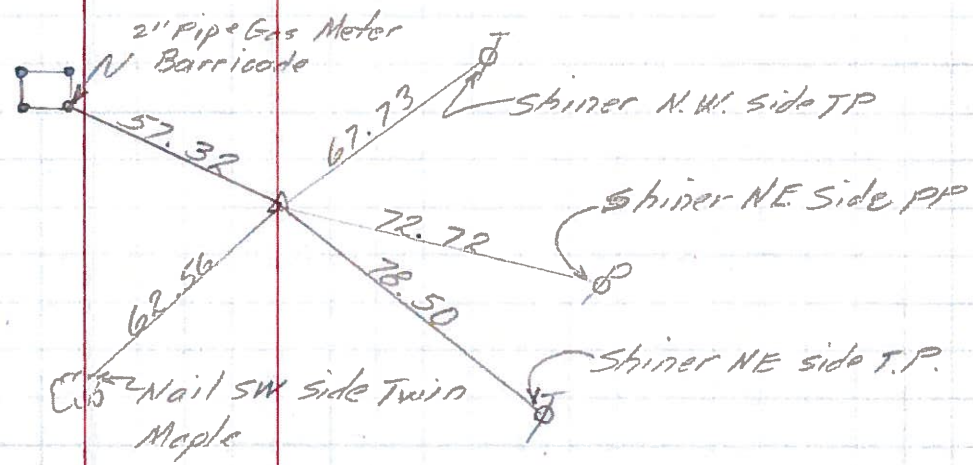 2" Pipe Gas Meter
Barricade
N
57.32
67.73
T
Shiner N.W. Side TP
Shiner NE Side PP
72.72
P
78.50
62.56
Shiner NE side T.P.
T
Nail SW side Twin
Maple